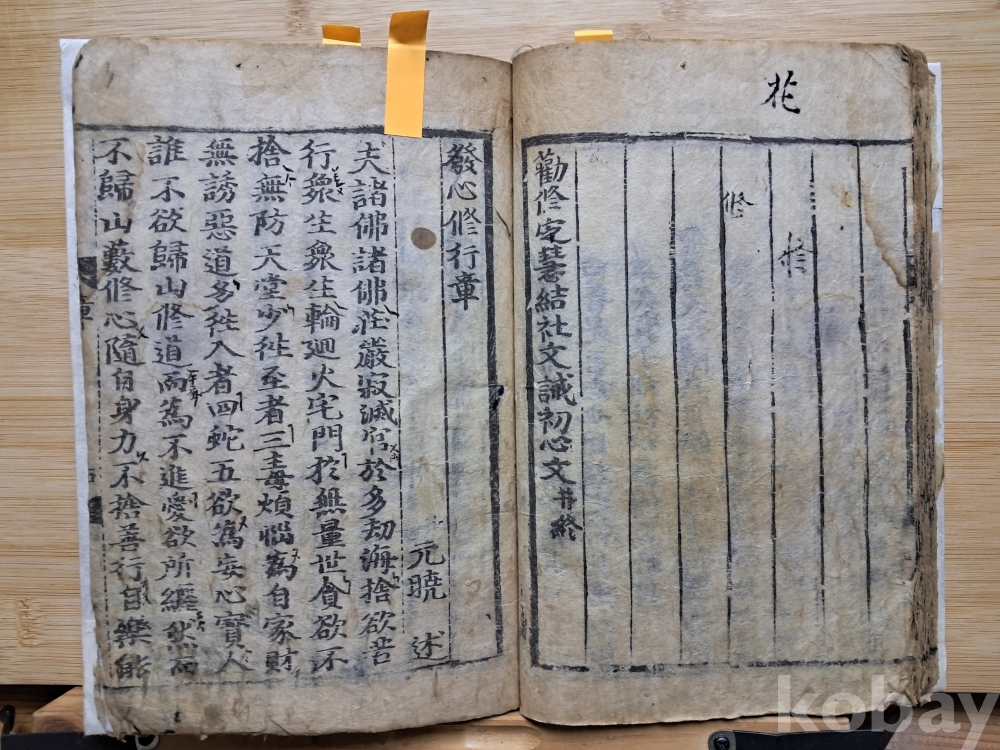 修
修
勸修定慧結社文誡初心文 并終
發心修行章
元曉 述
夫諸佛諸佛莊嚴寂滅宮於多劫海捨欲苦
行衆生衆生輪廻火宅門於無量世貪欲不
捨無防天堂少徃至者三毒煩惱為自家財
無誘惡道多徃入者四蛇五欲為妄心寶人
誰不欲歸山修道而為不進愛欲所纏然而
不歸山藪修心隨自身力不捨善行自樂能
kobay